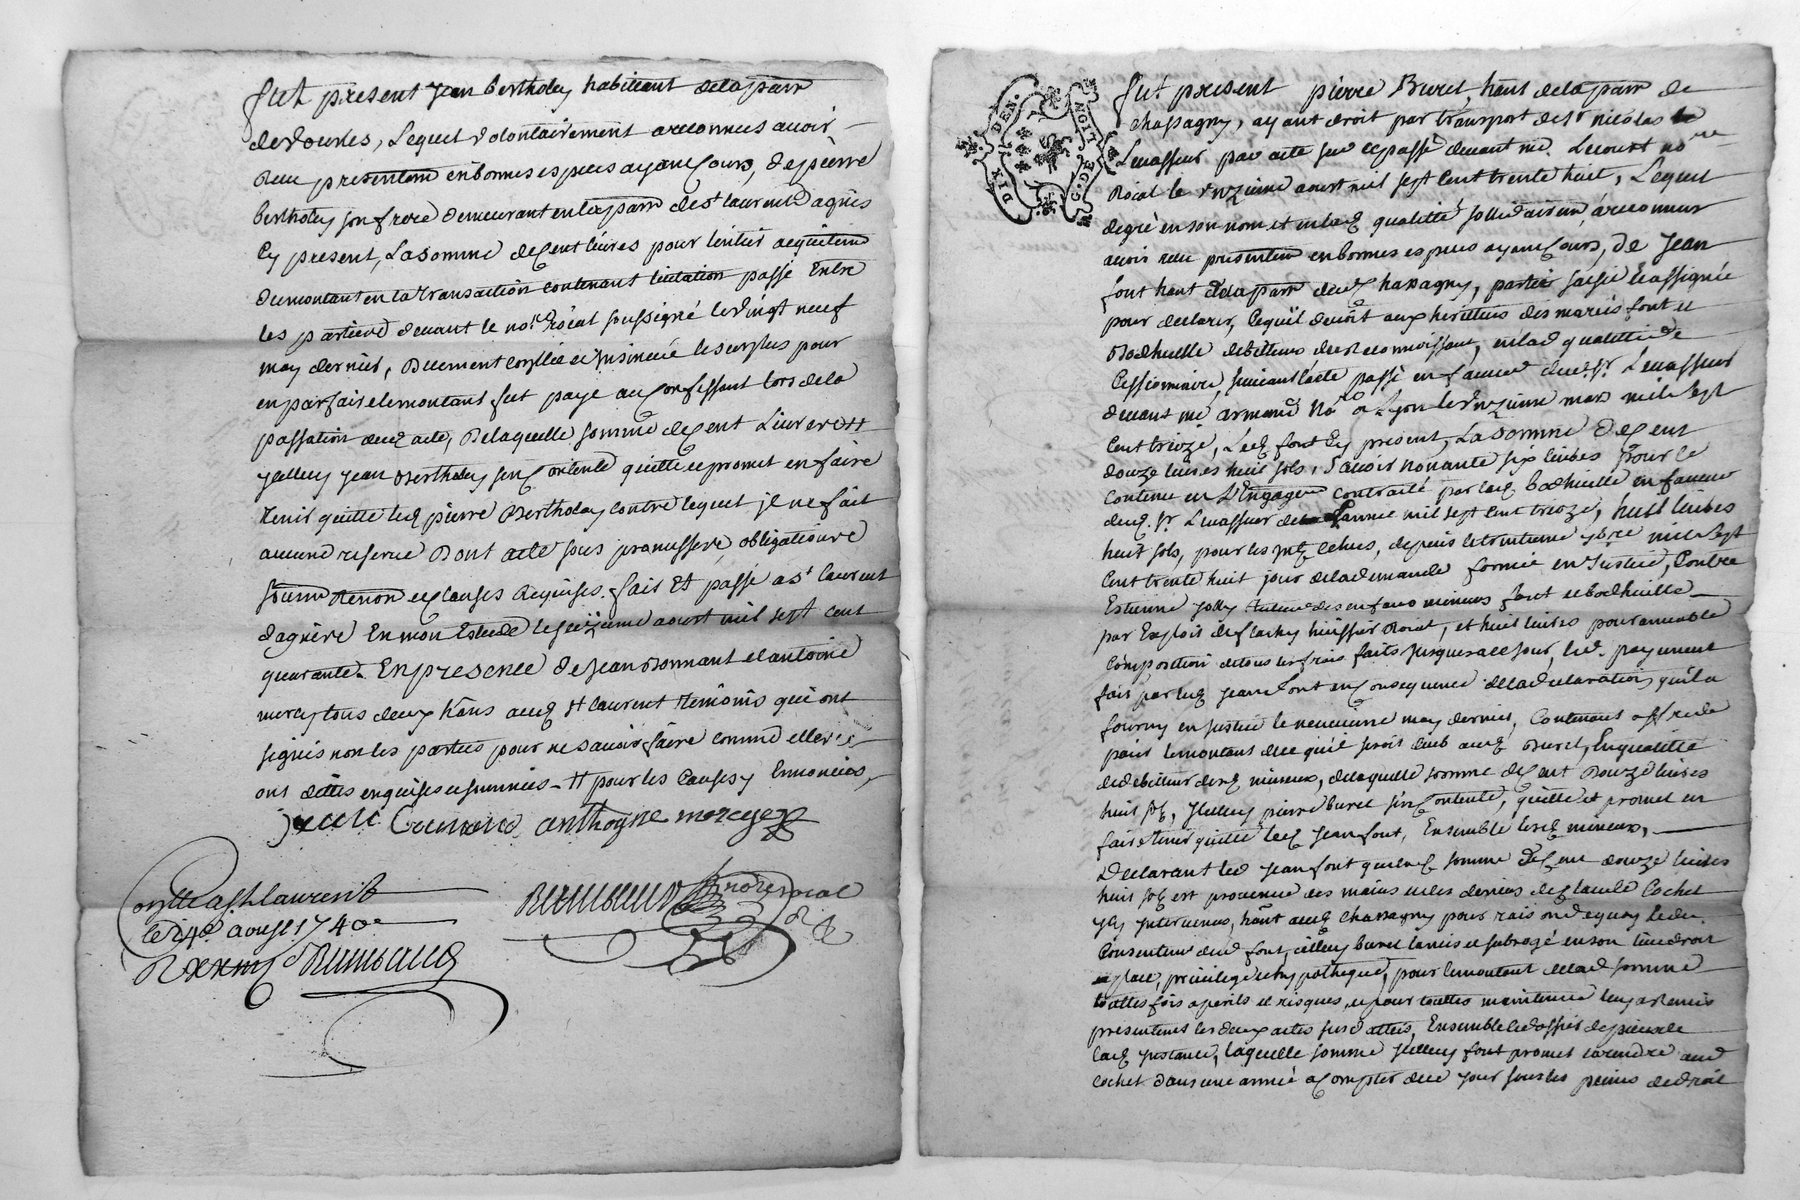 fut present Jean bertholey habittant delaparr
Lequel volontairement areconnus avoir
Receu presentem en bonnes especes ayant Cours, de pierre
bertholey son frere demeurant en la parr de st laurent d'agnis
Cy present, La somme de Cent livres pour l'entier acquittem
du montant en la transaction contenant passé Entre
les parties devant le nore Roial soussigné le vingt neuf
may dernier, Duement et insinuée le surplus pour
en parfaire le montant fut payé au Confessant lors de la
passation dud acte, De laquelle somme de Cent Livres
Jcelluy Jean Bertholey s'en Contente quitte et promet en faire
tenir quitte led pierre Bertholey contre lequel jl ne fait
aucune reserve Dont acte sous promesses, obligations
et Clauses Requises. fait Et passé a St laurent
d'agnere En mon Estude le seizieme aoust mil sept cent
quarante. En presence de Jean Bonnant et antoine
mercy tous deux h'ans aud St laurent temoins qui ont
signés non les parties pour ne savoir faire comme elles
ont dittes enquises et sommées. pour les Causes y Ennoncées,
anthoyne mercye
Contlle a St laurent
le 24e aoust 1740
nore roial
DIX DEN.
G. DE
fut present pierre Buret, hant de la parr de
chassagny, ayant droit par transport de sr nicolas
Levasseur par acte sur ce passé devant me. Lecourt nore
Roial le onzieme aoust mil sept Cent trente huit, Lequel
de gré en son nom et en lad qualitté sollidairem, areconnus
avoir receu presentem en bonnes especes ayant Cours, de Jean
font hant de la parr dud chassagny, partie saisie et assignée
pour declarer, Ce qu'il devoit aux herittiers des mariés font et
Bodhuille debitteurs de en lad qualitté de
Cessionnaire, suivant l'acte passé en faveur dud. sr. Levasseur
devant me armand No a Lyon le onzieme mars mil sept
Cent treize, Led font Cy present, La somme de Cent
douze livres huit sols, sçavoir nonante six livres pour le
contenu en L'Engagem contracté par lad bodhuille en faveur
dud. sr. Levasseur de Lannée mil sept Cent treize, huit livres
huit sols, pour les echus, depuis le trentieme mil sept
Cent trente huit jour de la demande formée en Justice, Contre
Estienne Jolly tuteur des enfans mineurs font et bodhuille
par Exploit de huissier Roial, et huit livres pour amiable
Composition de tous les frais faits jusques a ce jour, led. payement
fait par led Jean font en Consequence de la declaration qu'il a
fourny en Justice le neuvieme may dernier, Contenant offre de
paier le montant de ce qu'il seroit aud Buret, En qualitté
de debitteur desd mineurs, de laquelle somme de Cent Douze livres
huit sols, Jcelluy pierre buret s'en Contente, quitte et promet en
faire tenir quitte led Jean font, Ensemble lesd mineurs,
Declarant led Jean font que lad somme de Cent douze livres
huit sols est provenue des mains et des deniers de Claude Cochet
jcy Jntervenus, hant aud Chassagny pour raison de quoy led
Consentem dud font, jcelluy buret la mis et subrogé en son lieu droit
place, privilege et hypotheque, pour le montant de lad somme
touttes fois a perils et risques, et pour touttes maintenue luy a remis
presentemt les deux actes sus dattés, Ensemble le dossier de
lad jnstance, laquelle somme jcelluy font promet rendre aud
Cochet dans une année a Compter de ce jour sous les peines de droit